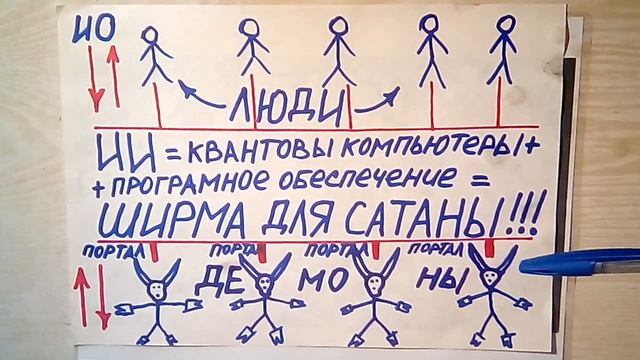 ИО
ЛЮДИ
ИИ = КВАНТОВЫ КОМПЬЮТЕРЫ +
+ ПРОГРАМНОЕ ОБЕСПЕЧЕНИЕ =
ШИРМА ДЛЯ САТАНЫ!!!
ПОРТАЛ ПОРТАЛ ПОРТАЛ ПОРТАЛ
ДЕ МО НЫ